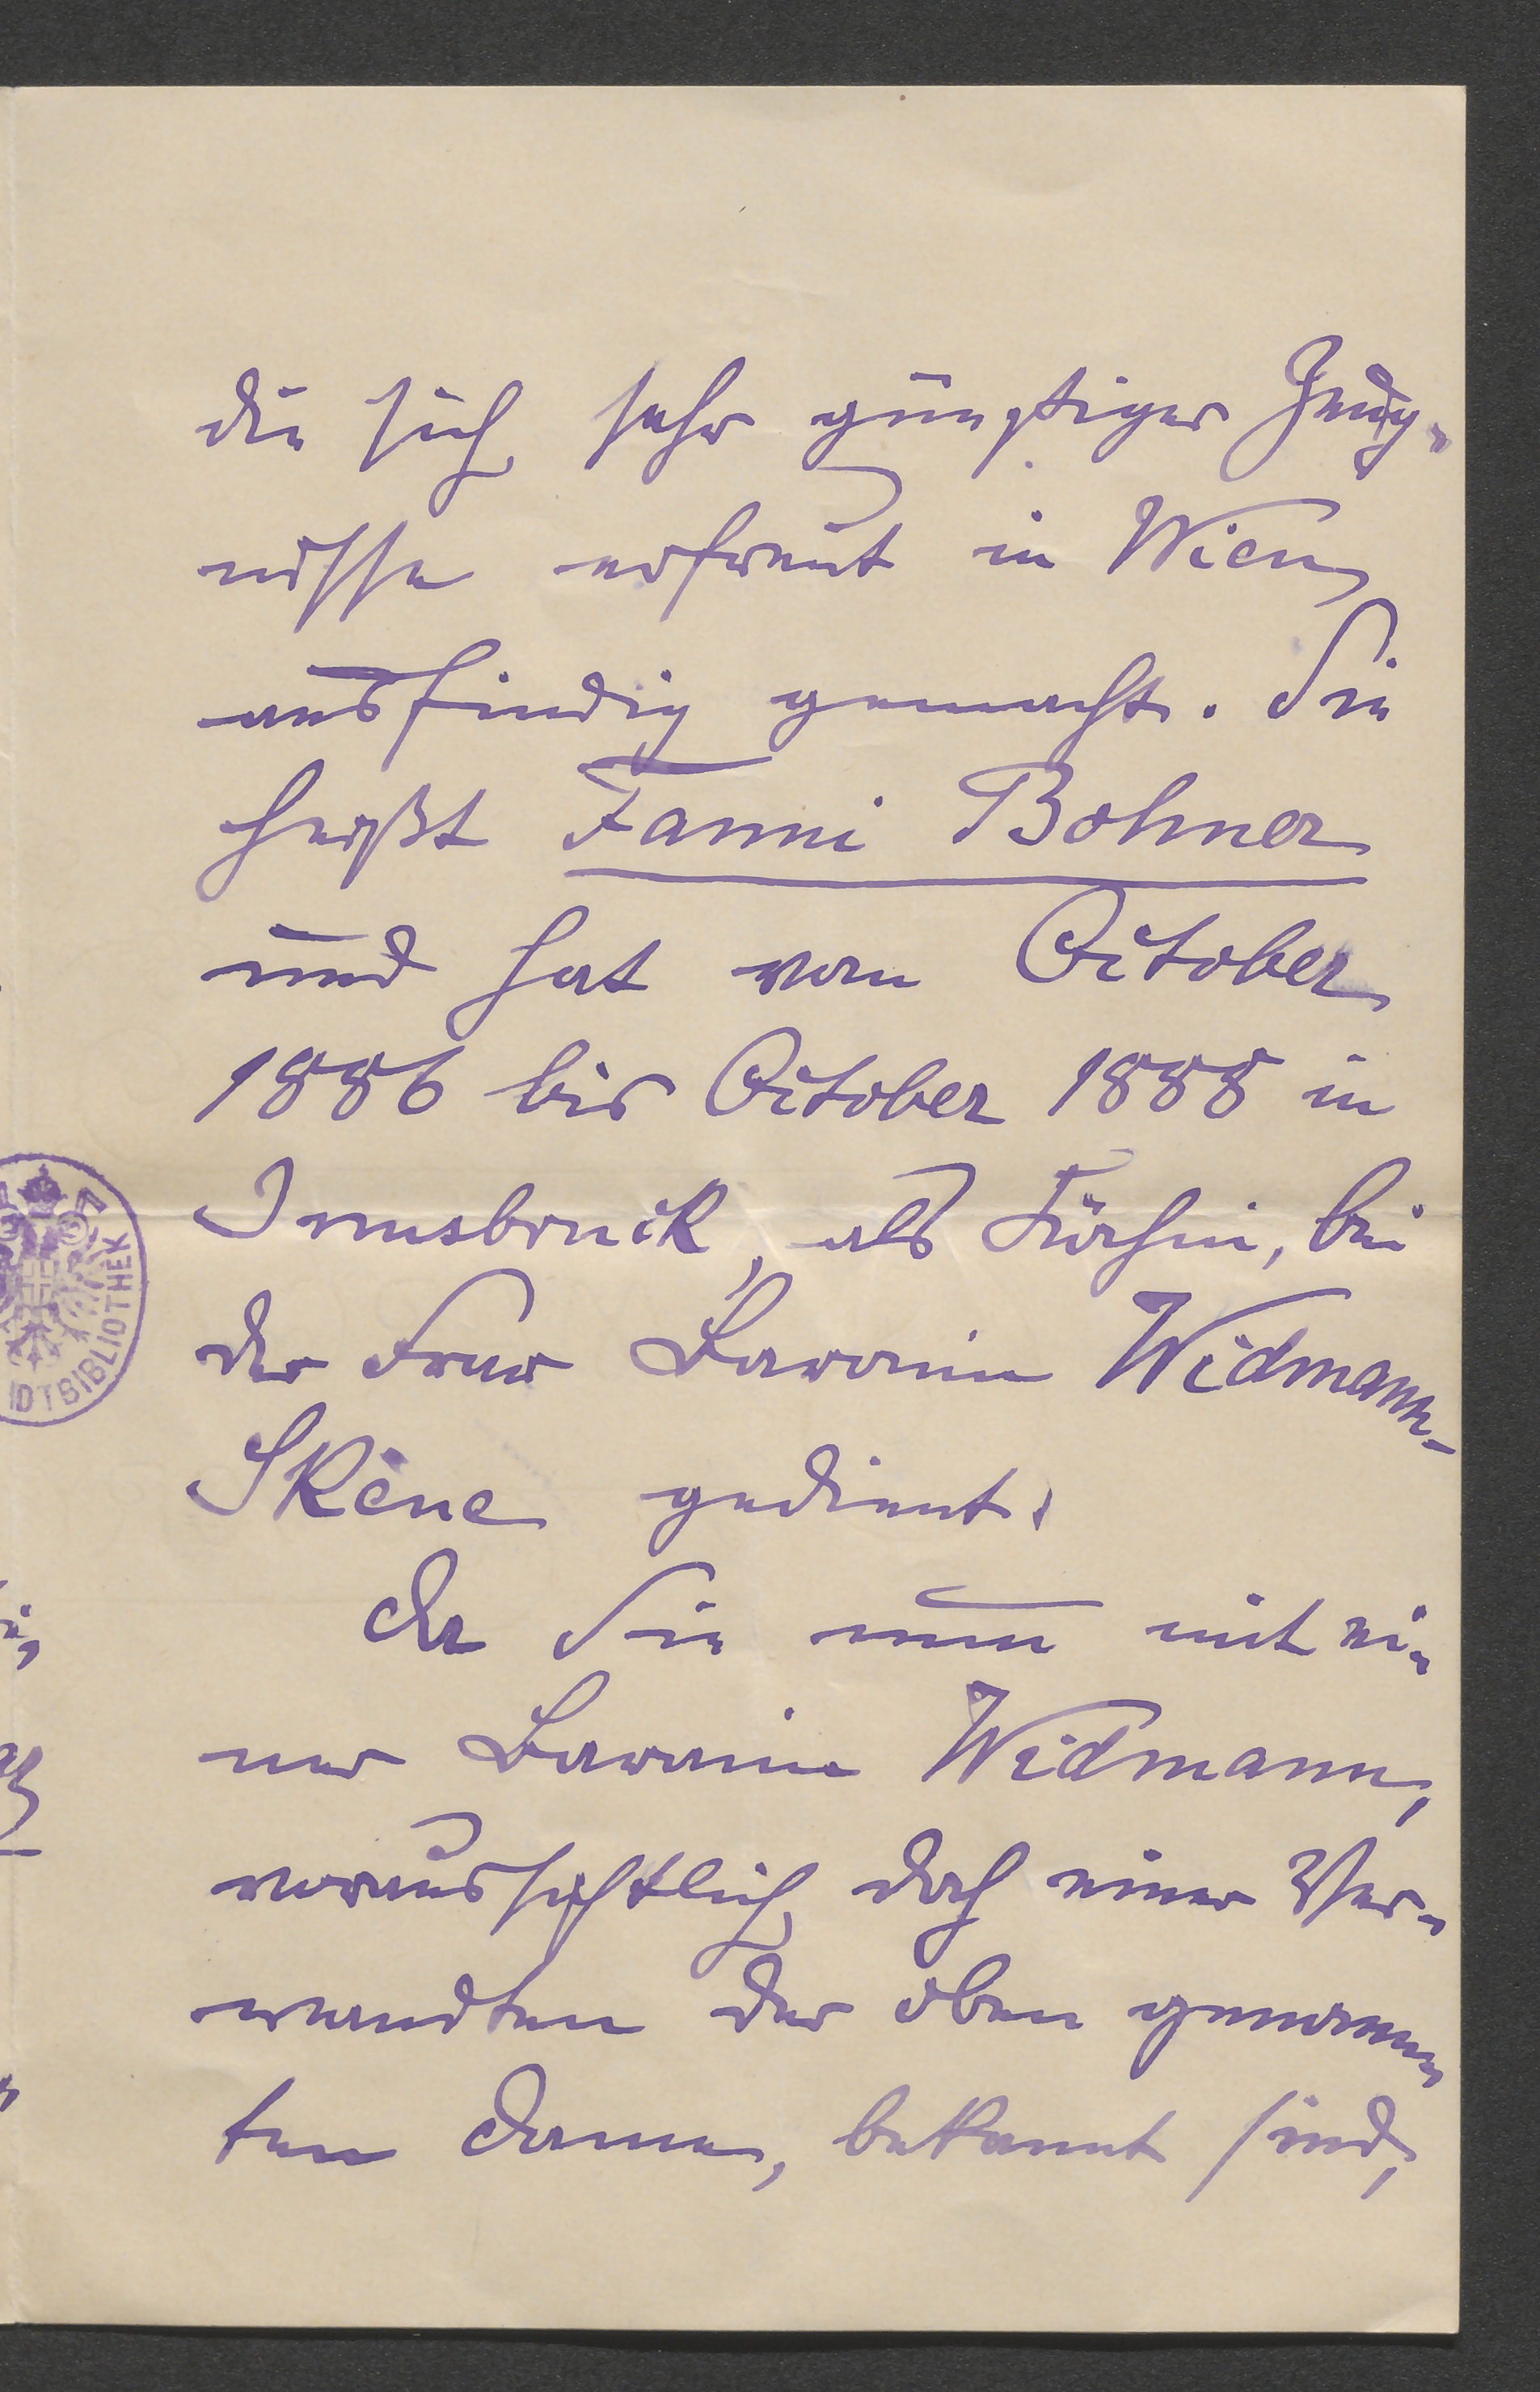 die sich sehr günstiger Zeug-
nisse erfreut in Wien
ausfindig gemacht. Sie
heißt Fanni Bohner
und hat vom October
1886 bis October 1888 in
Innsbruck, als Köchin, bei
der Frau Baronin Widmann-
Skene gedient.
Da Sie nun mit ei-
ner Baronin Widmann,
voraussichtlich doch einer Ver-
wandten der oben genann-
ten Dame, bekannt sind,
DTBIBLIOTHEK